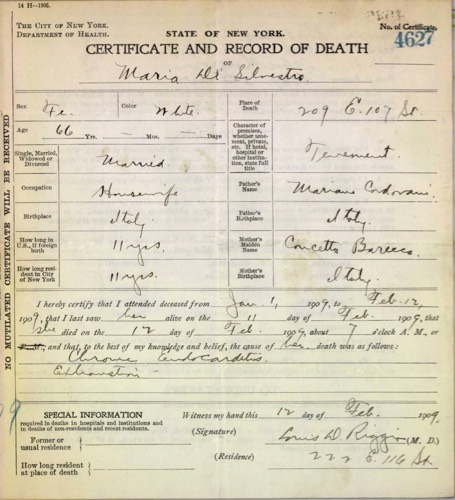 14 H—1905.
THE CITY OF NEW YORK.
DEPARTMENT OF HEALTH.
STATE OF NEW YORK.
No. of Certificate.
4627
CERTIFICATE AND RECORD OF DEATH
OF
Maria Di Silvestro
Sex Fe. Color White.
Place of Death 209 E. 107 St
Age 66 Yrs. — Mos. — Days
Character of premises, whether tenement, private, etc. If hotel, hospital or other institution, state full title
Tenement.
Single, Married, Widowed or Divorced Married
Father's Name Mariano Cordovani.
Occupation Housewife
Father's Birthplace Italy.
Birthplace Italy.
Mother's Maiden Name Concetto
How long in U.S., if foreign birth 11 yrs.
Mother's Birthplace Italy.
How long resident in City of New York 11 yrs.
NO MUTILATED CERTIFICATE WILL BE RECEIVED
I hereby certify that I attended deceased from Jan. 1, 1909, to Feb. 12,
1909, that I last saw her alive on the 11 day of Feb 1909, that
she died on the 12 day of Feb 1909, about 7 o'clock A. M., or
P.M., and that, to the best of my knowledge and belief, the cause of her death was as follows:
Chronic Endocarditis
Exhaustion
SPECIAL INFORMATION
required in deaths in hospitals and institutions and in deaths of non-residents and recent residents.
Former or usual residence
How long resident at place of death
Witness my hand this 12 day of Feb. 1909.
(Signature) Louis D. (M. D.)
(Residence) 222 E. 116 St.